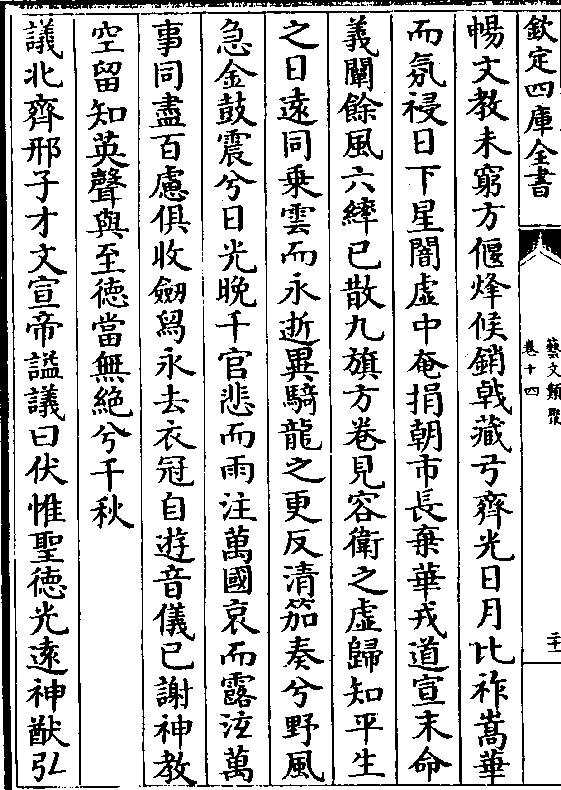 欽定四庫全書
藝文類聚
卷十四
二十
暢文教未窮方偃烽候銷戟藏弓齊光日月比祚嵩華
而氛祲日下星闇虛中奄捐朝市長棄華戎道宣末命
義闡餘風六繂已散九旗方卷見容衛之虛歸知平生
之日遠同乗雲而永逝異騎龍之更反清笳奏兮野風
急金鼓震兮日光晚千官悲而雨注萬國哀而露泫萬
事同盡百慮俱收劔舄永去衣冠自遊音儀已謝神教
空留知英聲與至徳當無絶兮千秋
議北齊邢子才文宣帝諡議曰伏惟聖徳光遠神猷弘